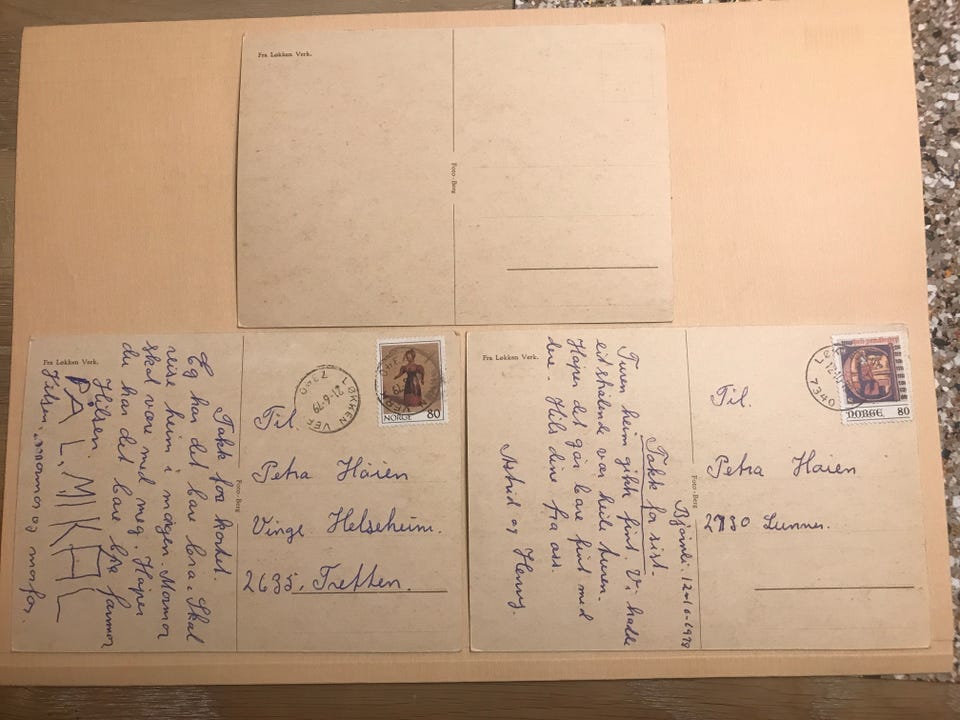 Fra Løkken Verk.
Foto - Berg
Fra Løkken Verk.
Takk for kortet.
Eg har det bare bra. Skal
reise heim i morgen. Mamma
skal være med meg. Håper
du har det bare bra farmor
Hilsen.
PÅL MIKAEL
Hilsen. mormor og morfar.
Foto - Berg
LØKKEN VERK
21-6-79
7340
NORGE 80
Til.
Petra Høien
Vinge Helseheim.
2635. Tretten.
Fra Løkken Verk.
Bjørnli. 12-10-1978
Takk for sist.
Turen heim gikk fint. Vi hadde
eit strålende vær heile turen.
Håper det går bare fint med
dere. Hils dine fra oss.
Astrid og Henry.
Foto - Berg
7340
NORGE 80
Til.
Petra Høien
2750 Lunner.